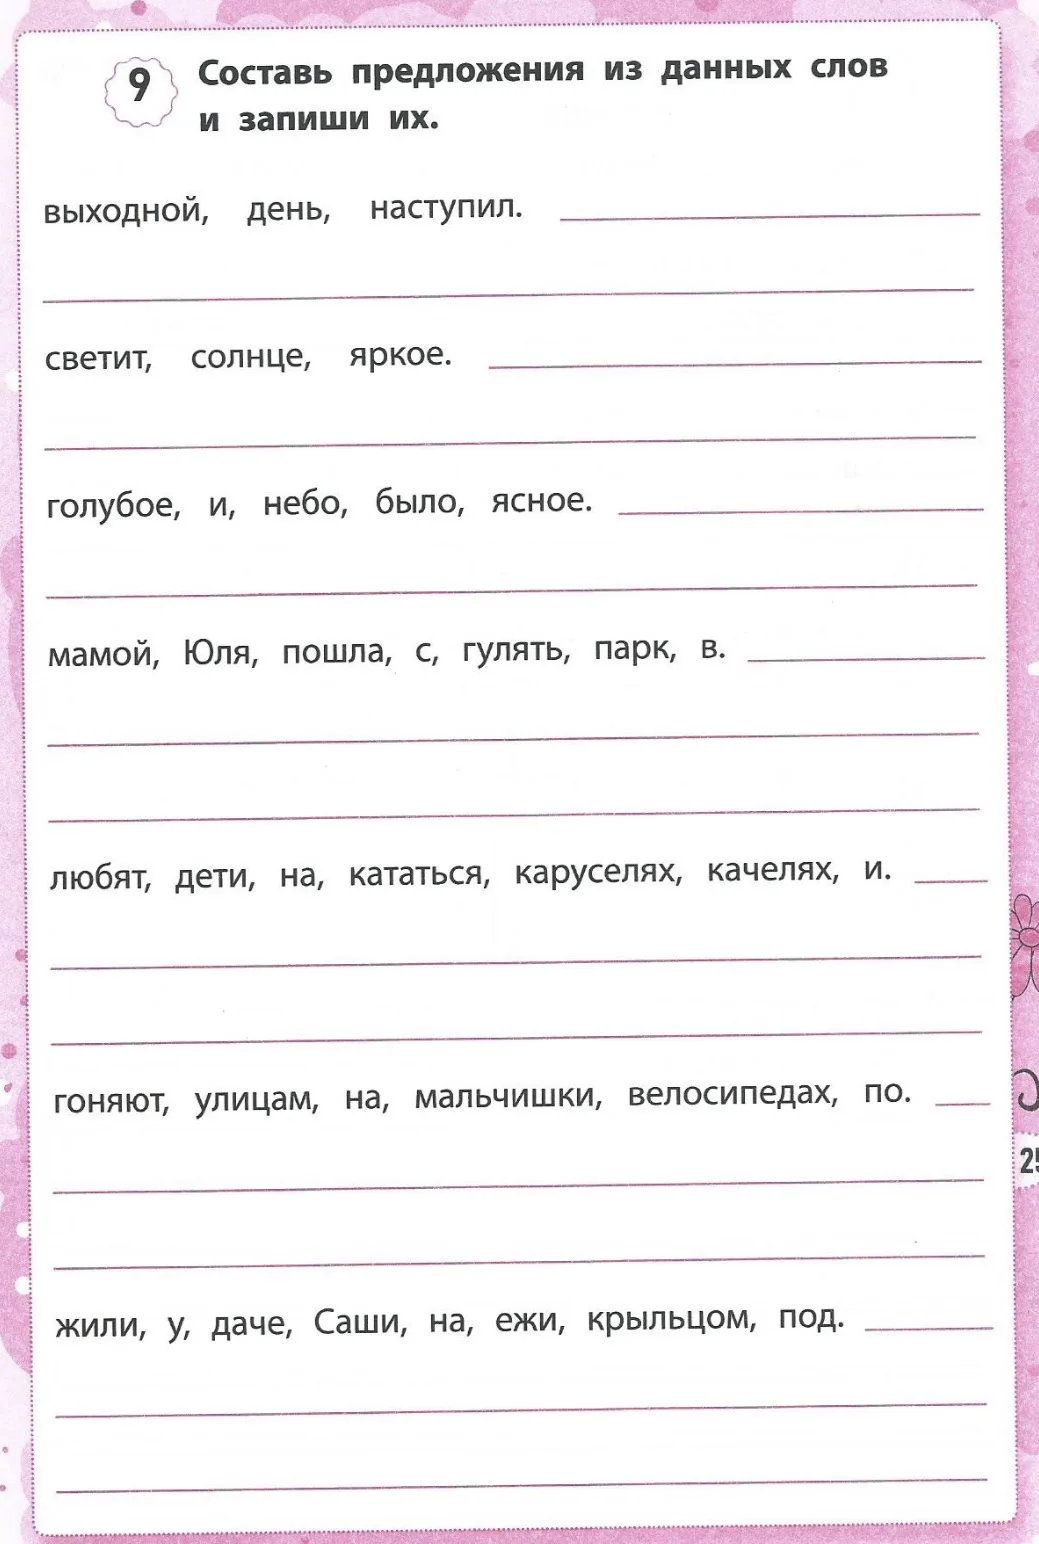 9
Составь предложения из данных слов
и запиши их.
выходной, день, наступил.
светит, солнце, яркое.
голубое, и, небо, было, ясное.
мамой, Юля, пошла, с, гулять, парк, в.
любят, дети, на, кататься, каруселях, качелях, и.
гоняют, улицам, на, мальчишки, велосипедах, по.
25
жили, у, даче, Саши, на, ежи, крыльцом, под.